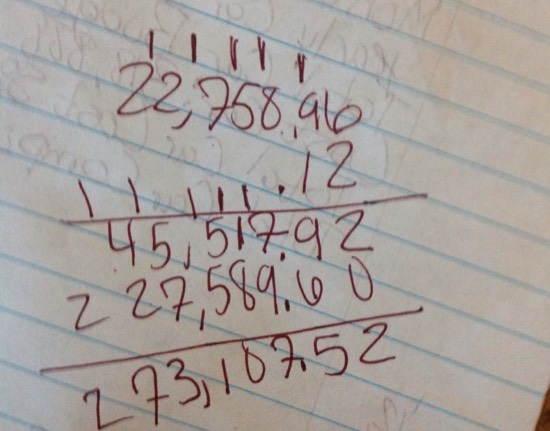 1 1 1 1 1
22,758.96
.12
1 1 1 1 1
45,517.92
227,589.60
273,107.52